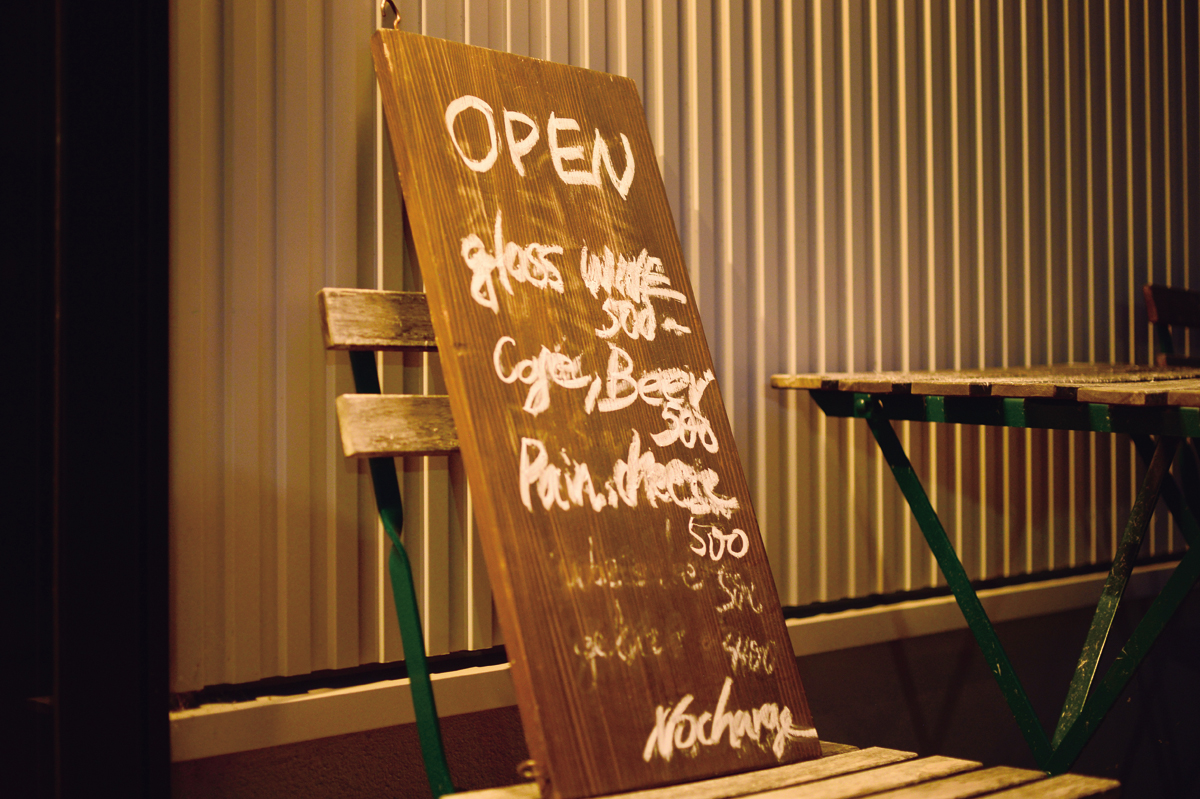 OPEN
glass WINE
500-
Cafe, Beer
500
Pain, cheese
500
500
No charge